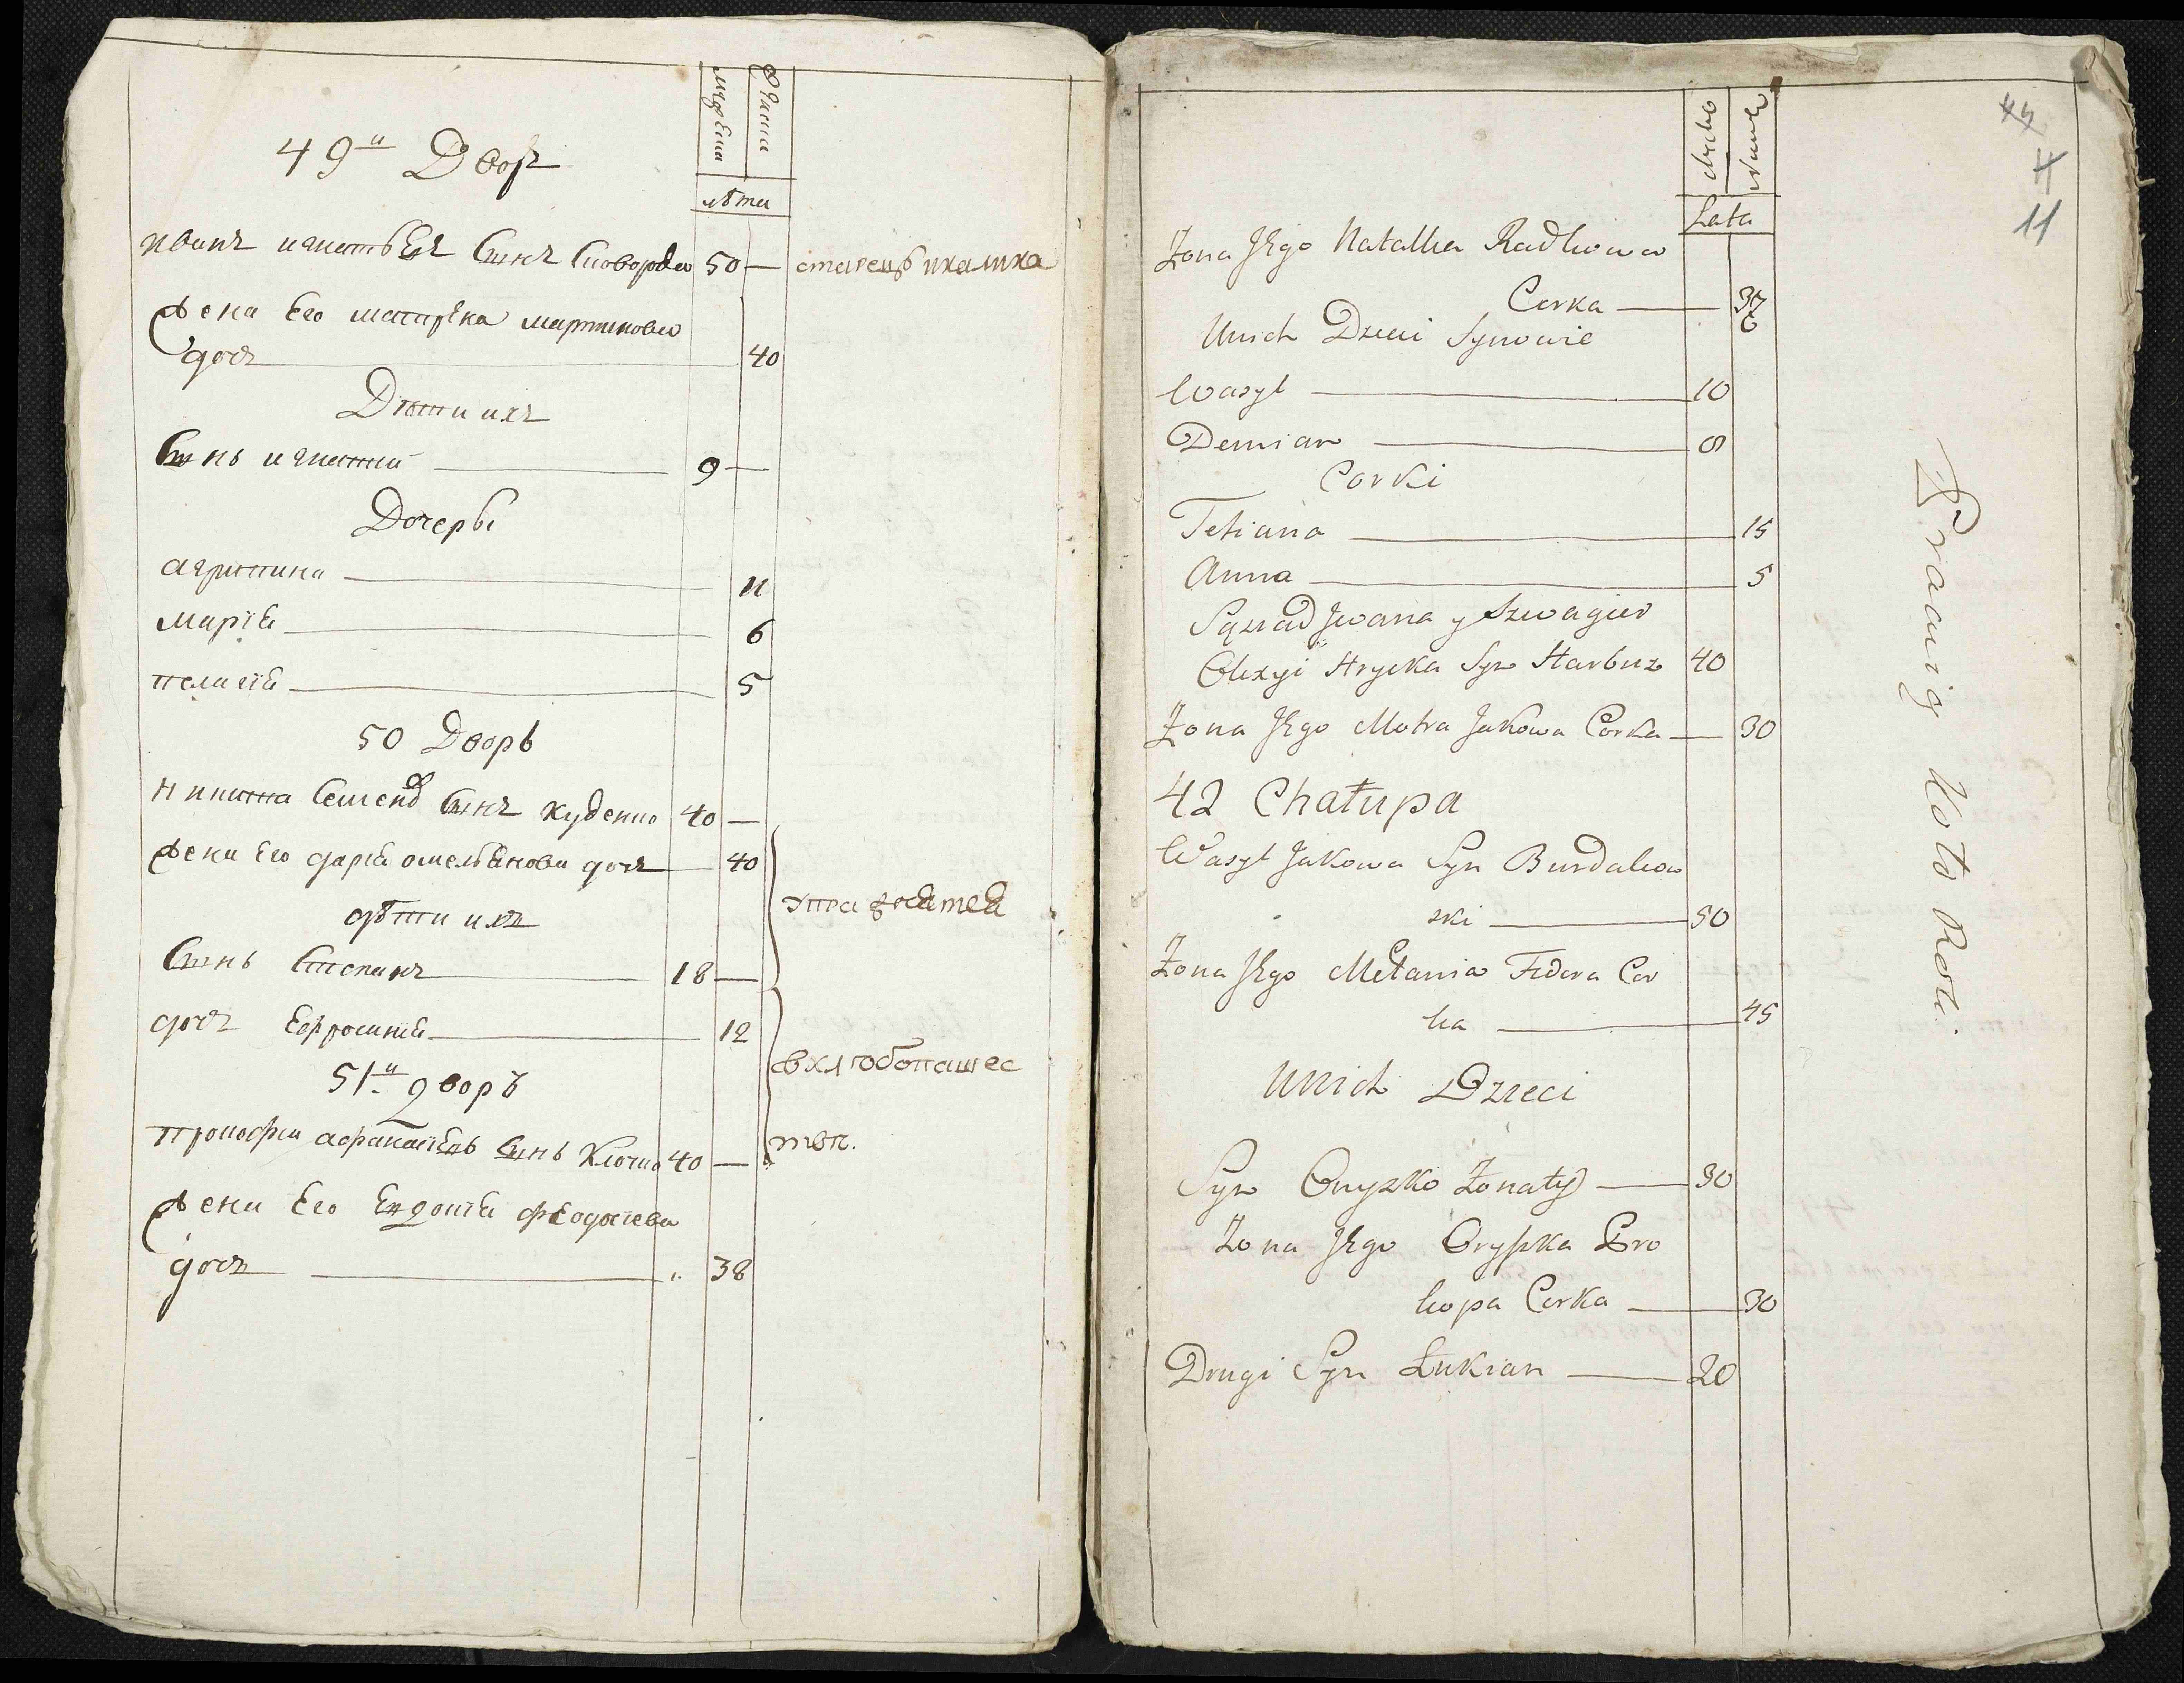 49й Дворъ
мужеска
женска
лѣта
иванъ игнатьевъ синъ сковорода 50 — старець и калика
жена его матрена мартинова
дочъ 40
Дѣти ихъ
синь игнатий 9 —
Дочерѣ
агрипина 11
марія 6
пелагія 5
50 Дворь
никита семенов синъ куденко 40 —
жена его дария омелянова дочъ 40
упражняется
дѣти ихъ
синь степанъ 18 —
дочъ ефросинія 12
в хлѣбопашес
51й дворъ
трофим афанасіевь синь Клочко 40 — твѣ.
жена его евдокія феодосіева
дочъ 38
11
Lata
Żona Jego Natalka Radkowa
Corka — 36
Unich Dzieci Synowie
Wasyl — 10
Demian — 8
Corki
Tetiana — 15
Anna — 5
Sąsiad Jwana y Szwagier
Olexyi Hrycka Syn Harbuz 40
Żona Jego Motra Jakowa Corka — 30
42 Chałupa
Wasyl Jakowa Syn Burdakow
ski — 50
Żona Jego Mełania Fedora Cor
ka — 45
Unich Dzieci
Syn Onyszko Żonaty — 30
Żona Jego Oryszka Pro
kopa Corka — 30
Drugi Syn Łukian — 20
Pracuią koło Roli.